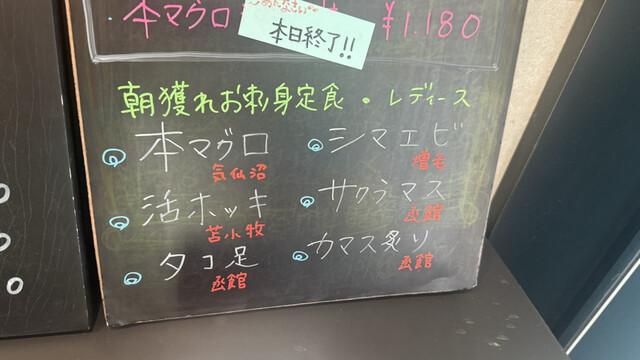 本マグロ
¥1.180
本日終了!!
朝獲れお刺身定食・レディース
本マグロ
気仙沼
シマエビ
増毛
活ホッキ
苫小牧
サクラマス
函館
タコ足
函館
カマス炙り
函館